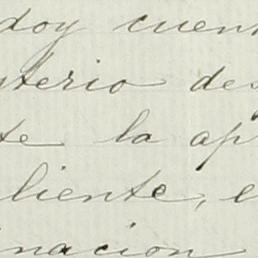 doy cuent
sterio des
te la ap
liente, e
inacion